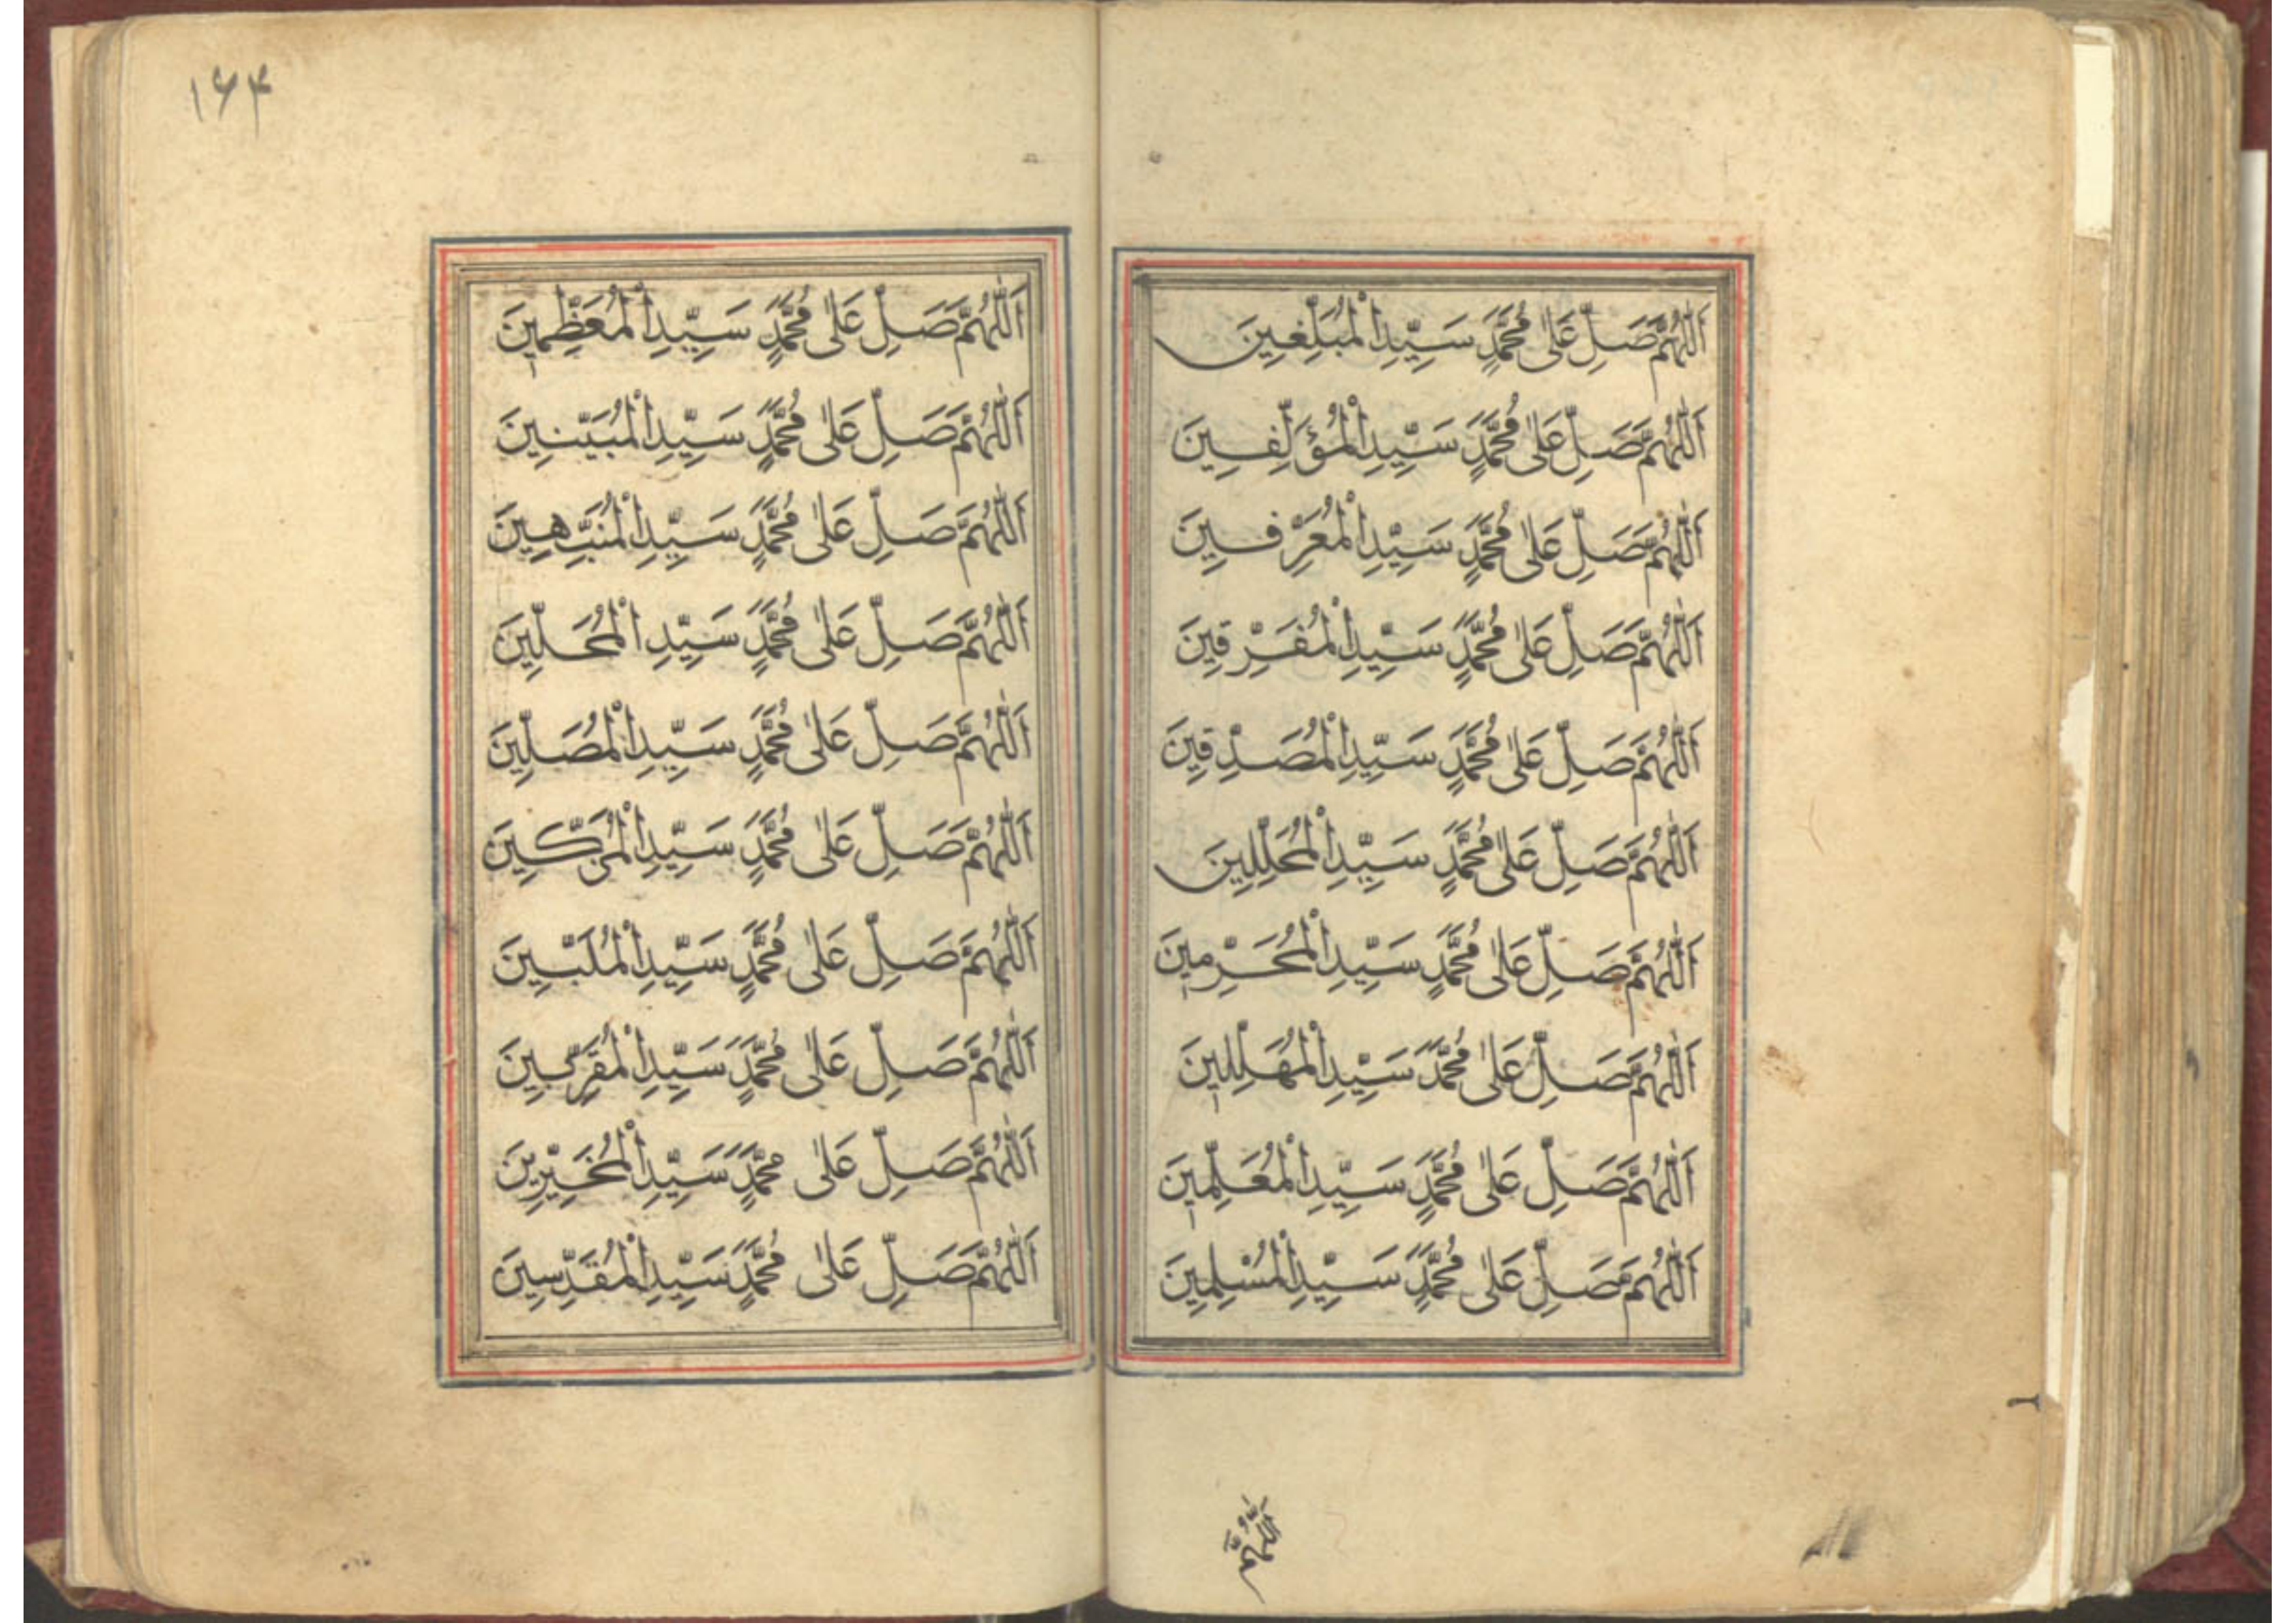 اَللّٰهُمَّ صَلِّ عَلٰى مُحَمَّدٍ سَيِّدِ الْمُبَلِّغِينَ
اَللّٰهُمَّ صَلِّ عَلٰى مُحَمَّدٍ سَيِّدِ الْمُؤَلِّفِينَ
اَللّٰهُمَّ صَلِّ عَلٰى مُحَمَّدٍ سَيِّدِ الْمُعَرِّفِينَ
اَللّٰهُمَّ صَلِّ عَلٰى مُحَمَّدٍ سَيِّدِ الْمُفَرِّقِينَ
اَللّٰهُمَّ صَلِّ عَلٰى مُحَمَّدٍ سَيِّدِ الْمُصَدِّقِينَ
اَللّٰهُمَّ صَلِّ عَلٰى مُحَمَّدٍ سَيِّدِ الْمُحَلِّلِينَ
اَللّٰهُمَّ صَلِّ عَلٰى مُحَمَّدٍ سَيِّدِ الْمُحَرِّمِينَ
اَللّٰهُمَّ صَلِّ عَلٰى مُحَمَّدٍ سَيِّدِ الْمُهَلِّلِينَ
اَللّٰهُمَّ صَلِّ عَلٰى مُحَمَّدٍ سَيِّدِ الْمُعَلِّمِينَ
اَللّٰهُمَّ صَلِّ عَلٰى مُحَمَّدٍ سَيِّدِ الْمُسْلِمِينَ
اَللّٰهُمَّ
۱۶۴
اَللّٰهُمَّ صَلِّ عَلٰى مُحَمَّدٍ سَيِّدِ الْمُعَظِّمِينَ
اَللّٰهُمَّ صَلِّ عَلٰى مُحَمَّدٍ سَيِّدِ الْمُبَيِّنِينَ
اَللّٰهُمَّ صَلِّ عَلٰى مُحَمَّدٍ سَيِّدِ الْمُنَبِّهِينَ
اَللّٰهُمَّ صَلِّ عَلٰى مُحَمَّدٍ سَيِّدِ الْمُحَلِّينَ
اَللّٰهُمَّ صَلِّ عَلٰى مُحَمَّدٍ سَيِّدِ الْمُصَلِّينَ
اَللّٰهُمَّ صَلِّ عَلٰى مُحَمَّدٍ سَيِّدِ الْمُزَكِّينَ
اَللّٰهُمَّ صَلِّ عَلٰى مُحَمَّدٍ سَيِّدِ الْمُلَبِّينَ
اَللّٰهُمَّ صَلِّ عَلٰى مُحَمَّدٍ سَيِّدِ الْمُقَرَّبِينَ
اَللّٰهُمَّ صَلِّ عَلٰى مُحَمَّدٍ سَيِّدِ الْمُخَيِّرِينَ
اَللّٰهُمَّ صَلِّ عَلٰى مُحَمَّدٍ سَيِّدِ الْمُقَدِّسِينَ